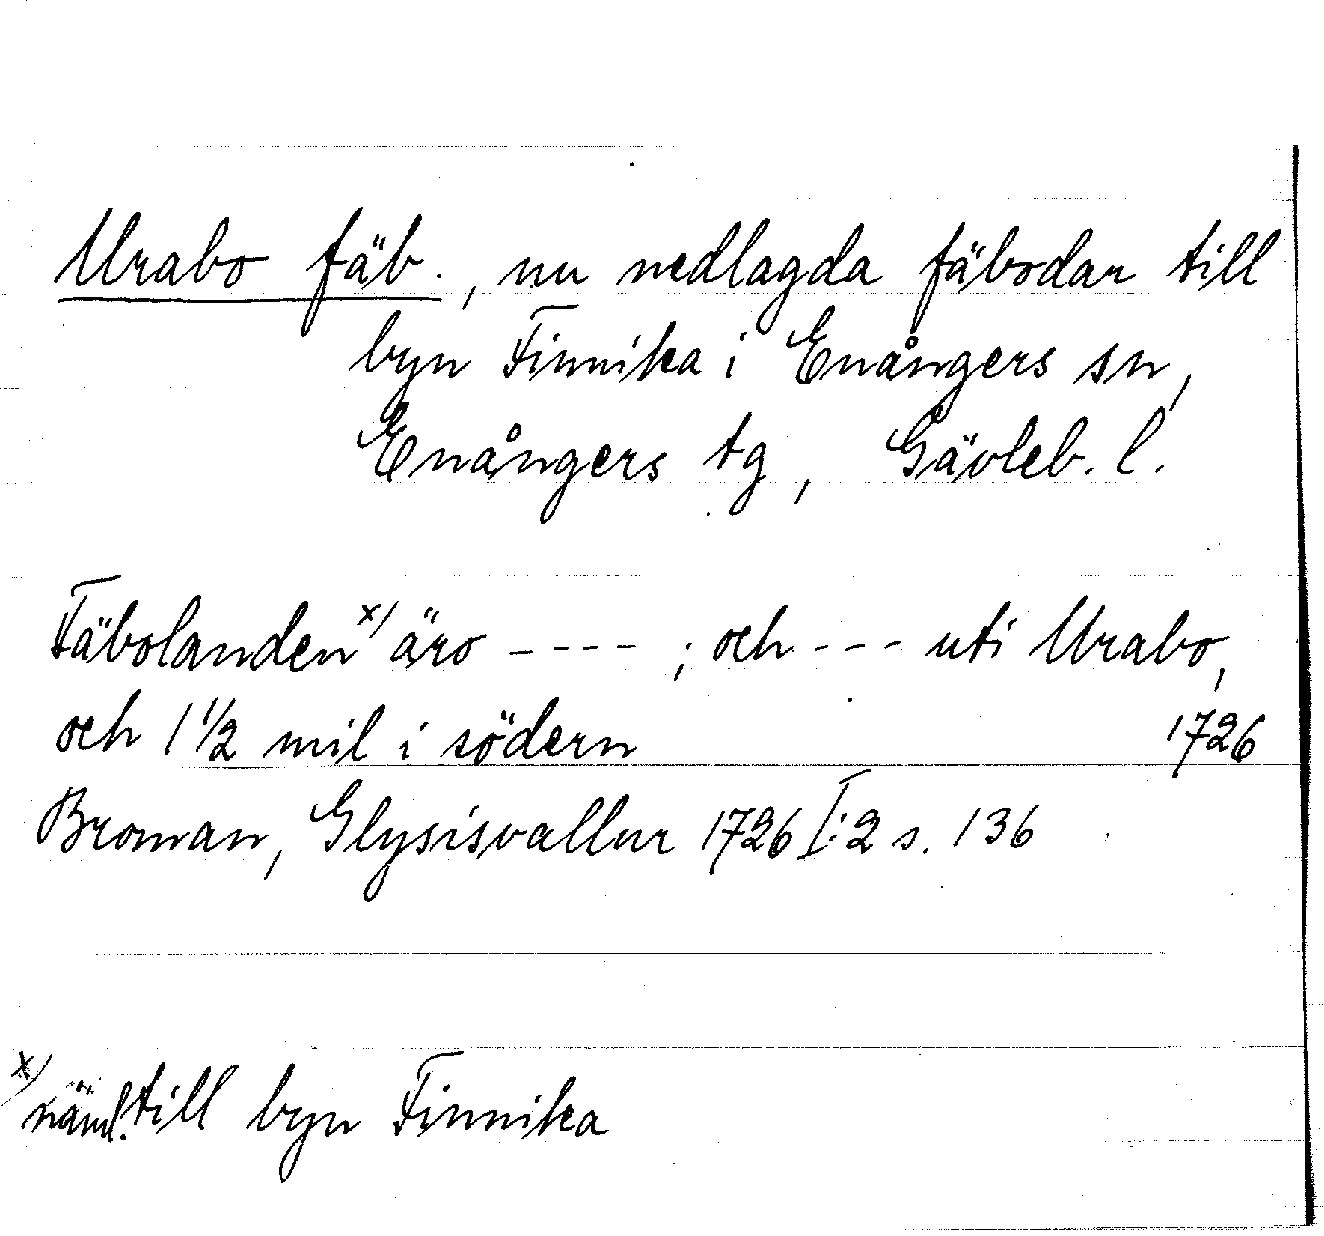 Urabo fäb., nu nedlagda fäbodar till
byn Finnika i Enångers sn,
Enångers tg, Gävleb. l.
Fäbolanden x/ äro - - - - ; och - - - uti Urabo,
och 1 1/2 mil i södern 1726
Broman, Glysisvallur 1726 I:2 s. 136
x/ näml. till byn Finnika